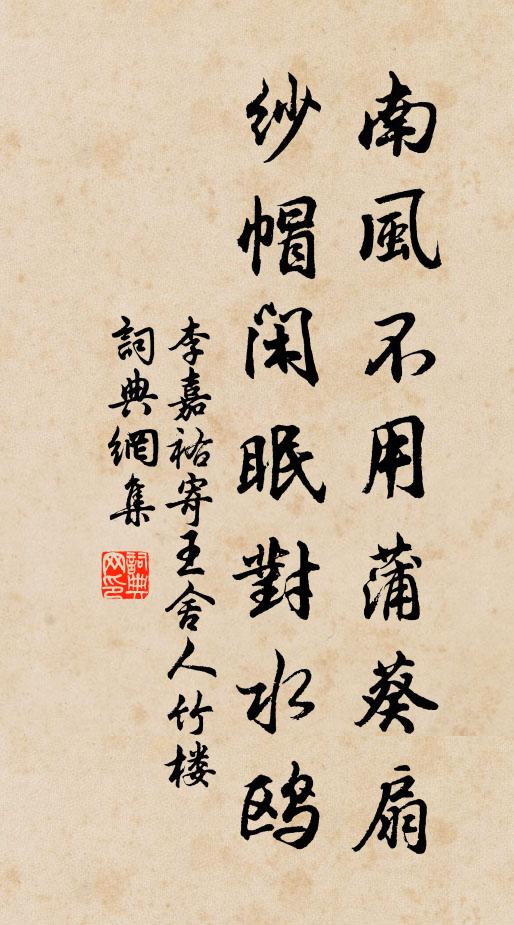 南風不用蒲葵扇
紗帽閑眠對水鸥
李嘉祐寄王舍人竹楼
詞典網集
詞典
网印